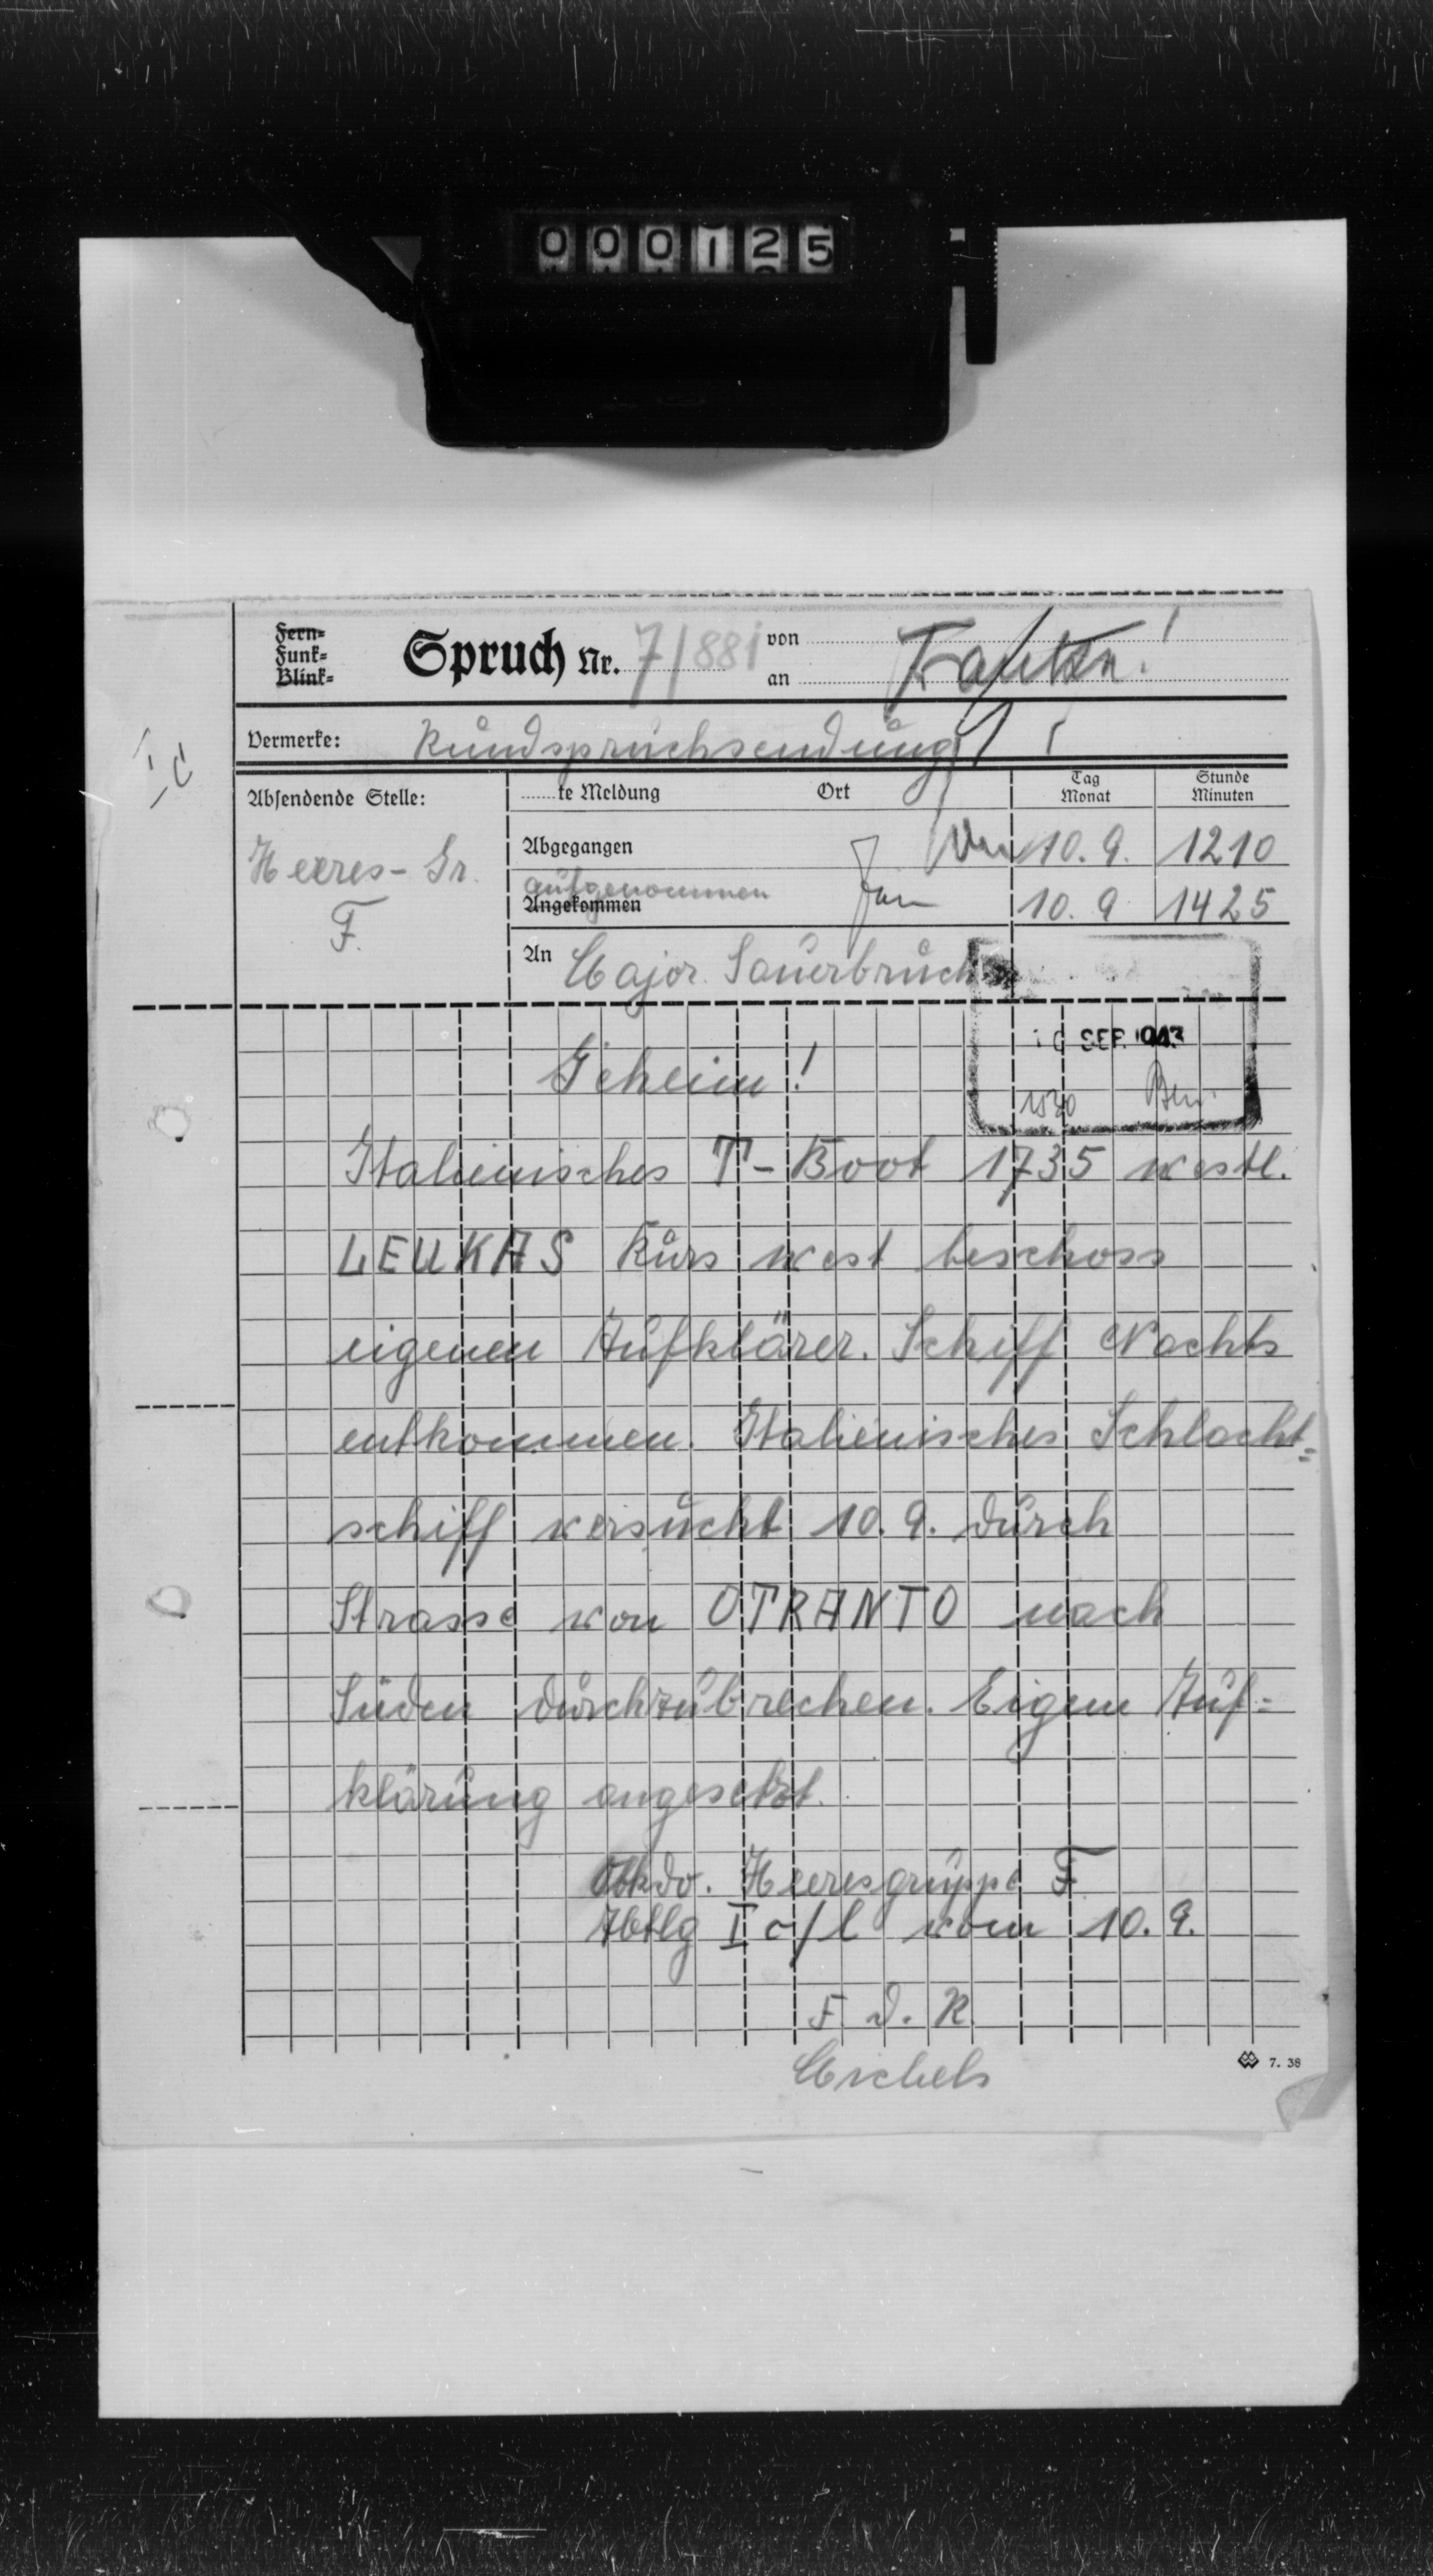 000125
Fern=
Funk=
Blink=
Spruch Nr. 7/881 von
an
Vermerke: Rundspruchsendung
Ic
Absendende Stelle:
......te Meldung Ort Tag Monat Stunde Minuten
Heeres-Gr.
F.
Abgegangen 10.9. 1210
aufgenommen
Angekommen 10.9 1425
An Major Sauerbruch
SEP. 1943
1530
Geheim!
Italienisches T-Boot 1735 westl.
LEUKAS Kurs west beschoss
eigenen Aufklärer. Schiff Nachts
entkommen. Italienisches Schlacht=
schiff versucht 10.9. durch
Strasse von OTRANTO nach
Süden durchzubrechen. Eigene Auf=
klärung angesetzt.
Obkdo. Heeresgruppe F
Abtlg I c/l vom 10.9.
F. d. R
Michels
7. 38